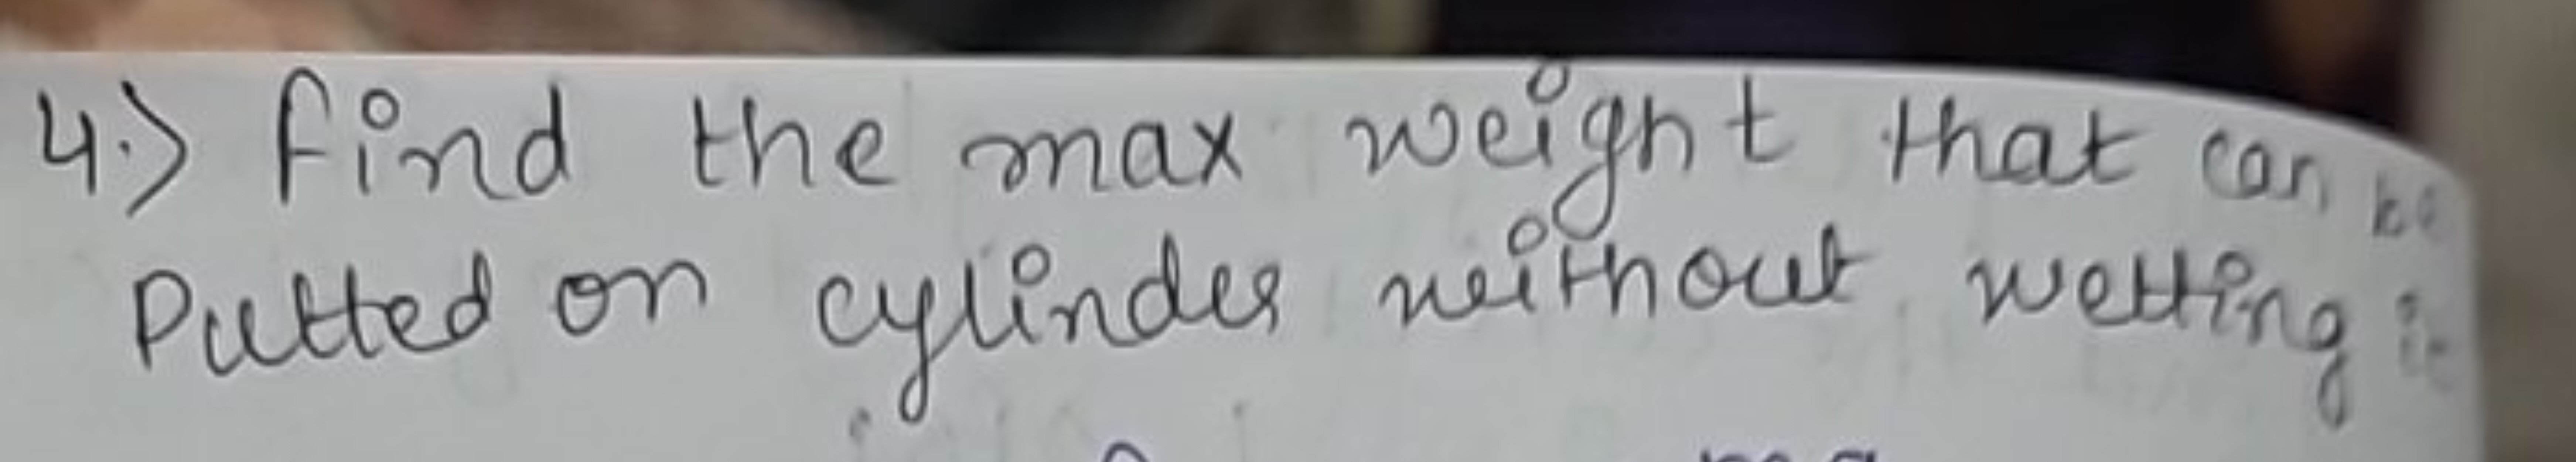 4.) find the max weight that can be
Putted on cylinder without wetting it